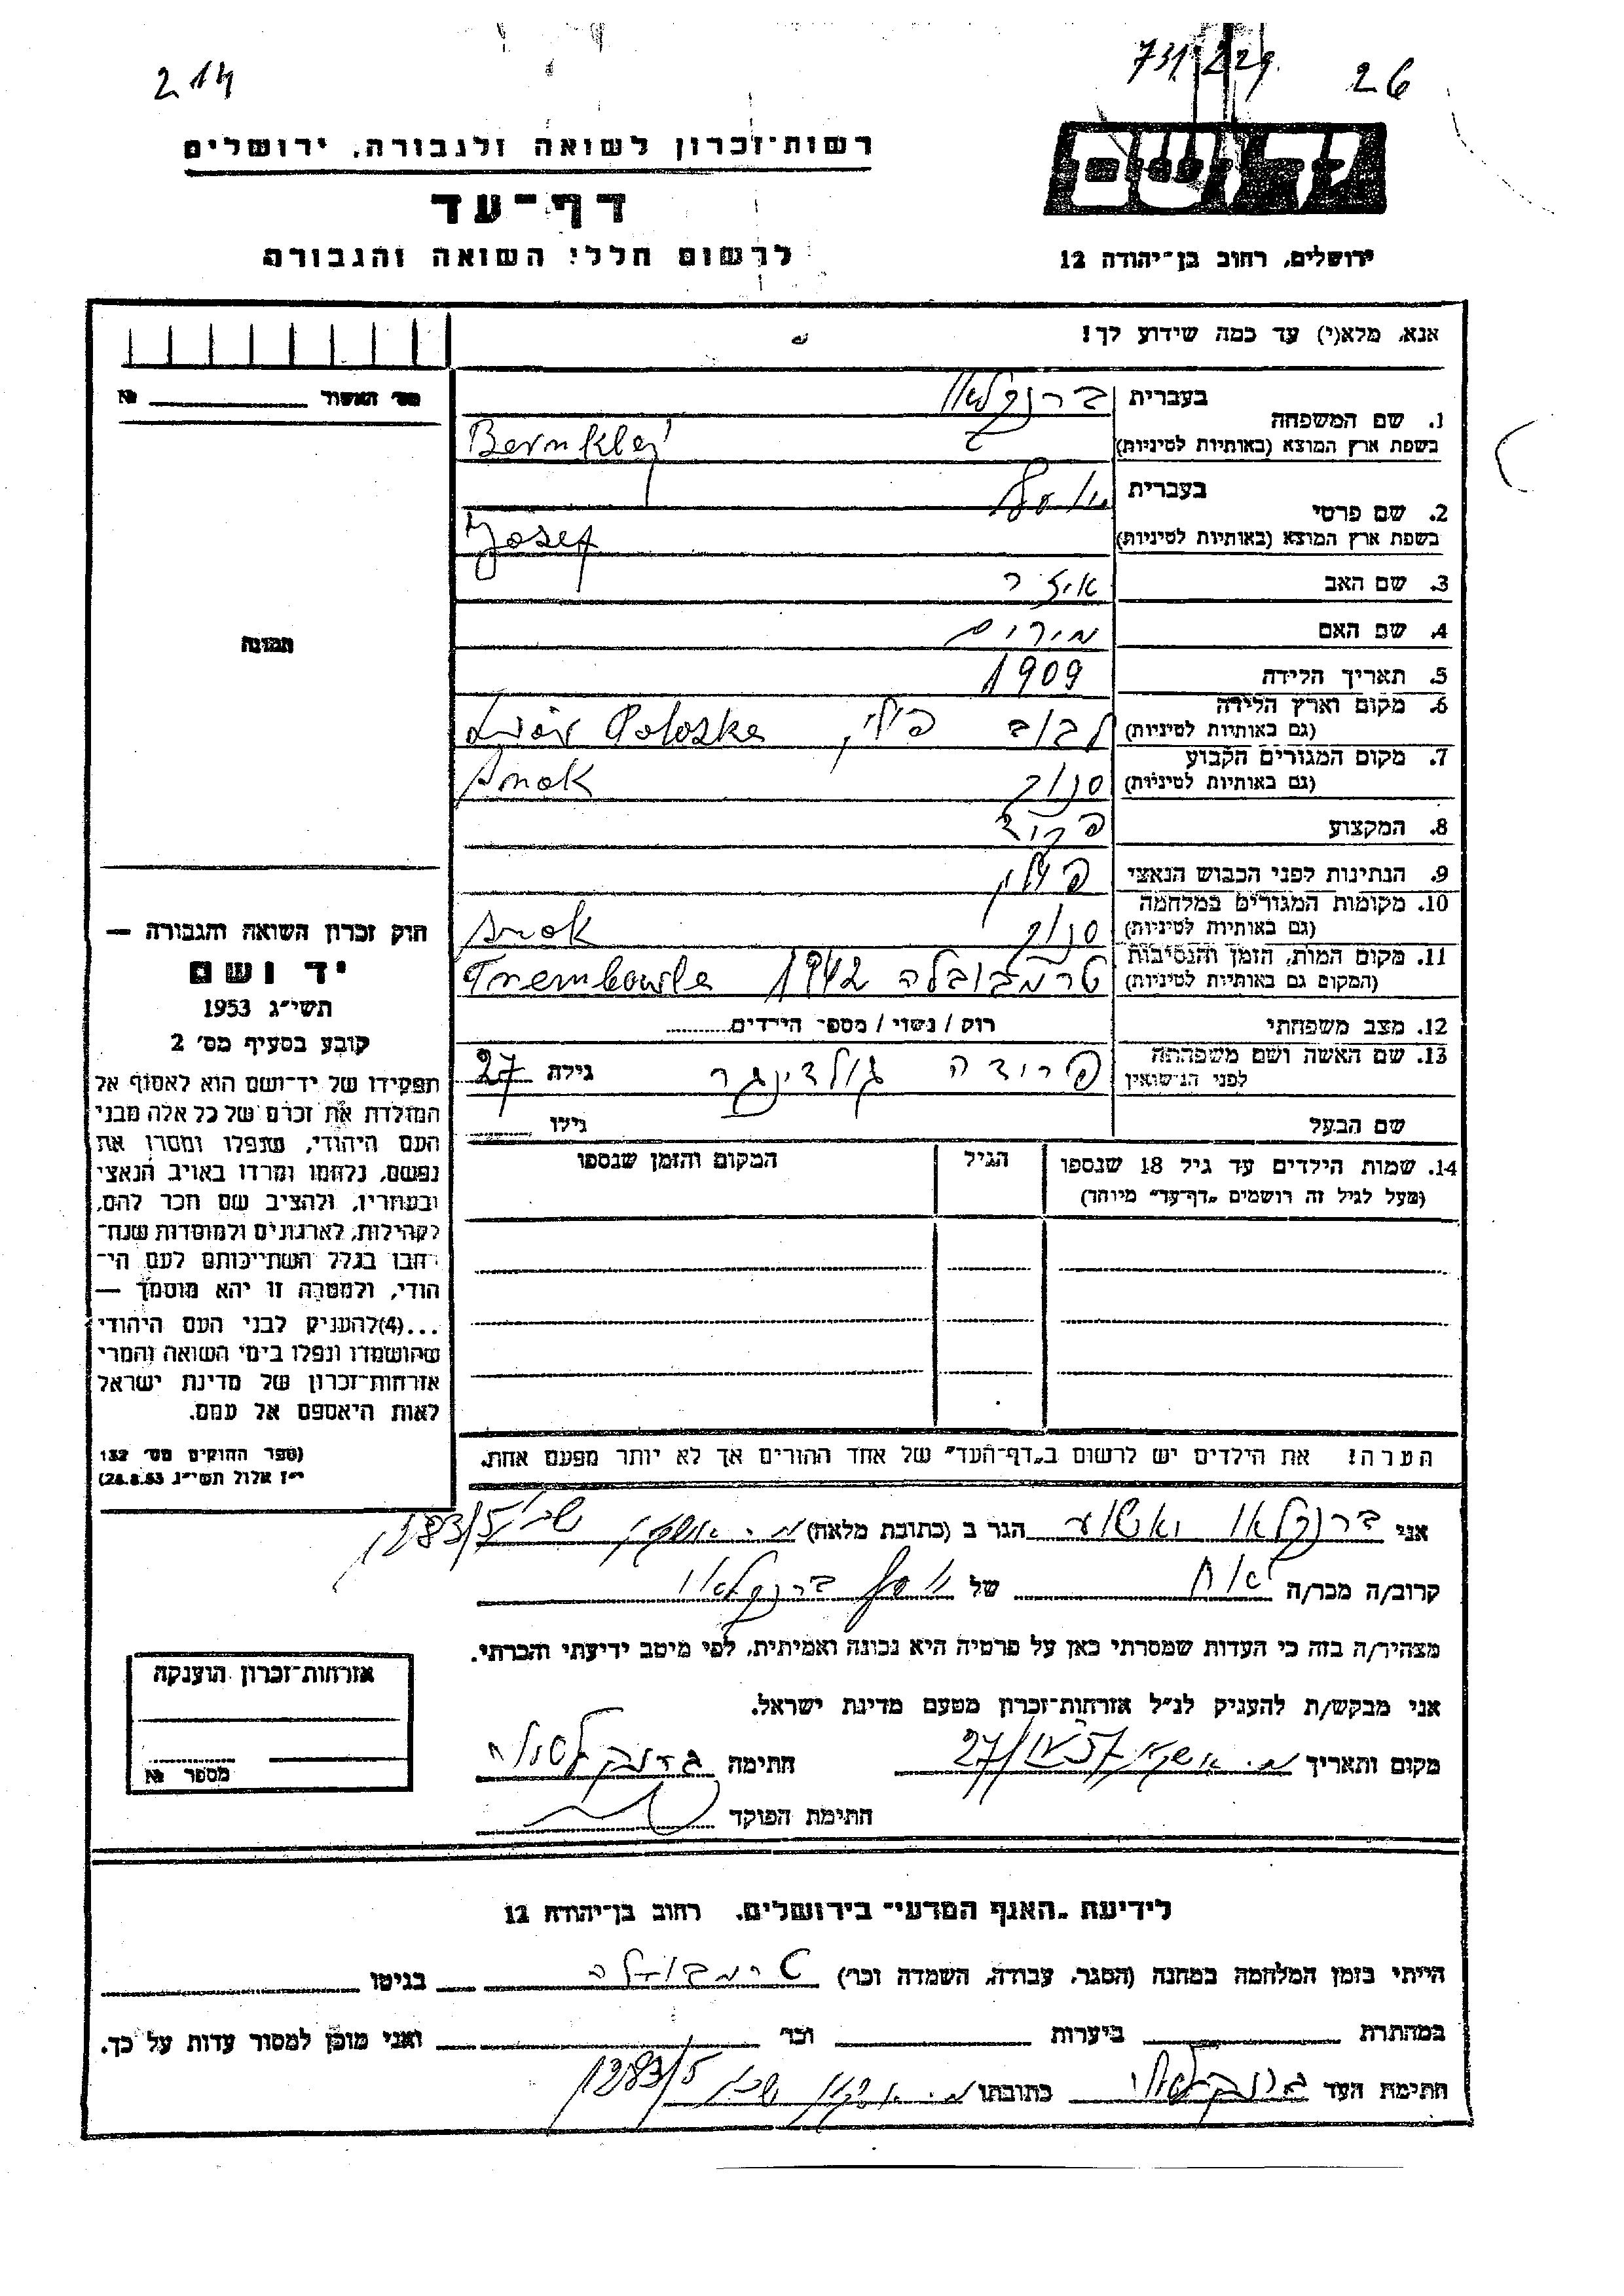 214
731.229. 26
רשות־זכרון לשואה ולגבורה, ירושלים
דף־עד
לרשום חללי השואה והגבורה
ידושם
ירושלים, רחוב בן־יהודה 12
אנא, מלא(י) עד כמה שידוע לך!
מס׳ האשור № 
1. שם המשפחה
בעברית
בשפת ארץ המוצא (באותיות לטיניות) Bernklej
2. שם פרטי
בעברית יוסף
בשפת ארץ המוצא (באותיות לטיניות) Josef
3. שם האב
4. שם האם מירים
5. תאריך הלידה 1909
6. מקום וארץ הלידה
(גם באותיות לטיניות) לבוב פולין Lwów Poloska
7. מקום המגורים הקבוע
(גם באותיות לטיניות) סנוק
8. המקצוע פקיד
9. הנתינות לפני הכבוש הנאצי פולין
10. מקומות המגורים במלחמה
(גם באותיות לטיניות) סנוק
11. מקום המות, הזמן והנסיבות
(המקום גם באותיות לטיניות) טרמבובלה 1942 Trembowla
12. מצב משפחתי רווק / נשוי / מספר הילדים
13. שם האשה ושם משפחתה
לפני הנישואין פרידה גולדינגר גילה 27
שם הבעל גילו
14. שמות הילדים עד גיל 18 שנספו
(מעל לגיל זה רושמים „דף־עד” מיוחד)
הגיל
המקום והזמן שנספו
הערה! את הילדים יש לרשום ב„דף־העד” של אחד ההורים אך לא יותר מפעם אחת.
תמונה
חוק זכרון השואה והגבורה —
יד ושם
תשי״ג 1953
קובע בסעיף מס׳ 2
תפקידו של יד־ושם הוא לאסוף אל
המולדת את זכרם של כל אלה מבני
העם היהודי, שנפלו ומסרו את
נפשם, נלחמו ומרדו באויב הנאצי
ובעוזריו, ולהציב שם וזכר להם,
לקהילות, לארגונים ולמוסדות שנח־
רבו בגלל השתייכותם לעם הי־
הודי, ולמטרה זו יהא מוסמך —
...(4)להעניק לבני העם היהודי
שהושמדו ונפלו בימי השואה והמרי
אזרחות־זכרון של מדינת ישראל
לאות היאספם אל עמם.
(ספר החוקים מס׳ 132
י״ז אלול תשי״ג 28.8.53)
אני הגר ב (כתובת מלאה) 1283/5
קרוב/ה מכר/ה אח של יוסף
מצהיר/ה בזה כי העדות שמסרתי כאן על פרטיה היא נכונה ואמיתית, לפי מיטב ידיעתי והכרתי.
אני מבקש/ת להעניק לנ״ל אזרחות־זכרון מטעם מדינת ישראל.
מקום ותאריך חתימה
חתימת הפוקד
אזרחות־זכרון הוענקה
מספר №
לידיעת „האגף המדעי” בירושלים, רחוב בן־יהודה 12
הייתי בזמן המלחמה במחנה (הסגר, עבודה, השמדה וכו׳) טרמבובלה בגיטו
במחתרת ביערות וכו׳ ואני מוכן למסור עדות על כך.
חתימת העד כתובתו 1283/5